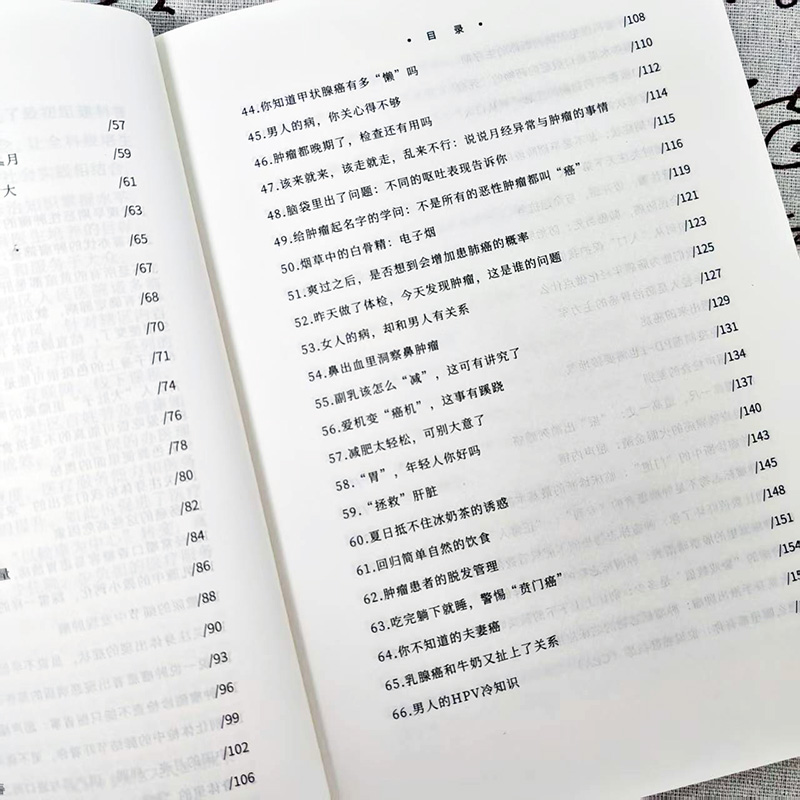 /57
月 /59
大 /61
/63
/65
/67
/68
/70
/71
/74
/76
/78
/80
/82
/84
量 /86
/88
/90
/93
/96
/99
/102
/106
• 目 录 •
44.你知道甲状腺癌有多“懒”吗 /108
45.男人的病，你关心得不够 /110
46.肿瘤都晚期了，检查还有用吗 /112
47.该来就来，该走就走，乱来不行：说说月经异常与肿瘤的事情 /114
48.脑袋里出了问题：不同的呕吐表现告诉你 /115
49.给肿瘤起名字的学问：不是所有的恶性肿瘤都叫“癌” /116
50.烟草中的白骨精：电子烟 /119
51.爽过之后，是否想到会增加患肺癌的概率 /121
52.昨天做了体检，今天发现肿瘤，这是谁的问题 /123
53.女人的病，却和男人有关系 /125
54.鼻出血里洞察鼻肿瘤 /127
55.副乳该怎么“减”，这可有讲究了 /129
56.爱机变“癌机”，这事有蹊跷 /131
57.减肥太轻松，可别大意了 /134
58.“胃”，年轻人你好吗 /137
59.“拯救”肝脏 /140
60.夏日抵不住冰奶茶的诱惑 /143
61.回归简单自然的饮食 /145
62.肿瘤患者的脱发管理 /148
63.吃完躺下就睡，警惕“贲门癌” /151
64.你不知道的夫妻癌 /154
65.乳腺癌和牛奶又扯上了关系
66.男人的HPV冷知识